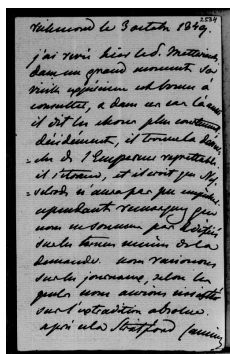 2534
richmond le 3 octobre 1849.
j'ai revu hier le d. Metternich,
dans un grand moment sa
vieille expérience est bonne à
consulter, a dans ces cas là
il dit les choses plus
décidément, il trouve la
de l'Empereur regrettable
il s'étonne, et il croit que
cependant remarquez que
nous ne sommes pas
sur les termes mêmes de la
demande. nous raisonnons
sur les journaux, selon les
quels nous aurions insisté
sur l'extradition absolue.
après cela Stratford Canning